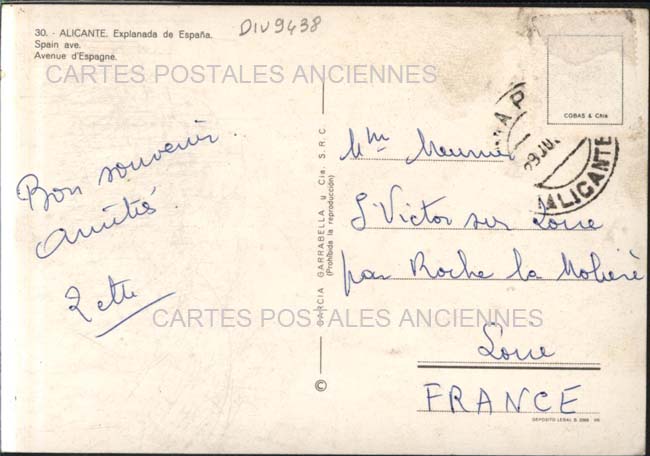 30. - ALICANTE. Explanada de España.
Spain ave.
Avenue d'Espagne.
DIV9438
CARTES POSTALES ANCIENNES
Bon souvenir
amitié
Zette
GARCIA GARRABELLA y Cia. S.R.C.
(Prohibida la reproducción)
©
COBAS & Cñia
ALICANTE
Mme Meunier
St Victor sur Loire
par Roche la Molière
Loire
FRANCE
CARTES POSTALES ANCIENNES
DEPOSITO LEGAL B.